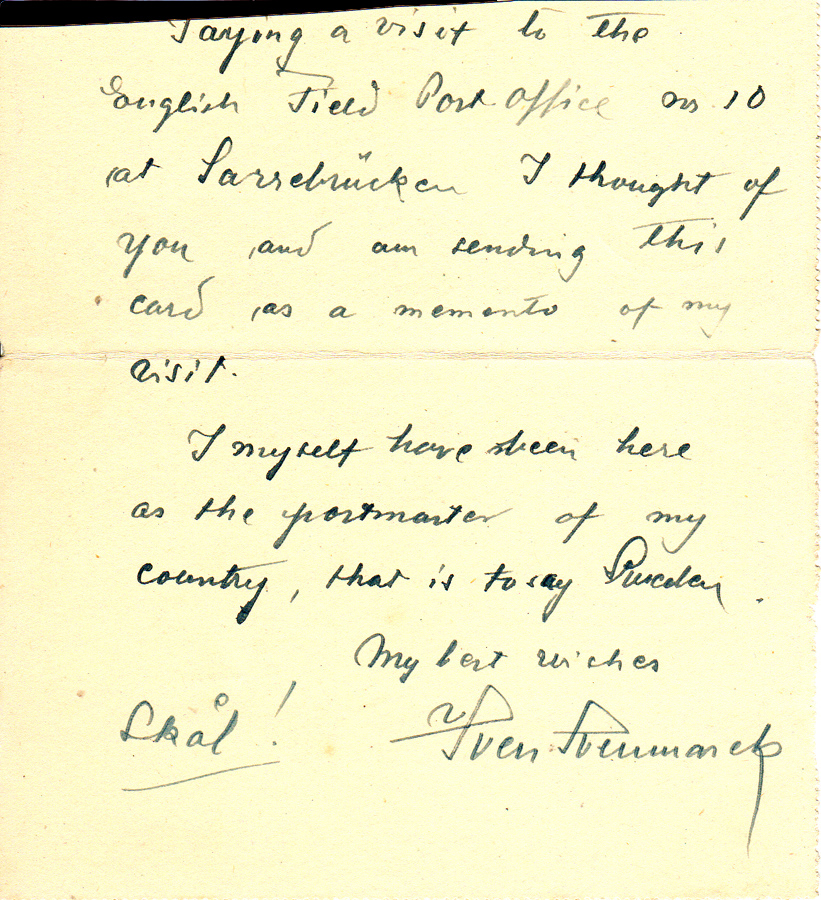 Paying a visit to the
English Field Post Office no 10
at Sarrebrücken I thought of
you and am sending this
card as a memento of my
visit.
I myself have been here
as the postmaster of my
country, that is to say Sweden.
My best wishes
Skål! Sven Svenmarck